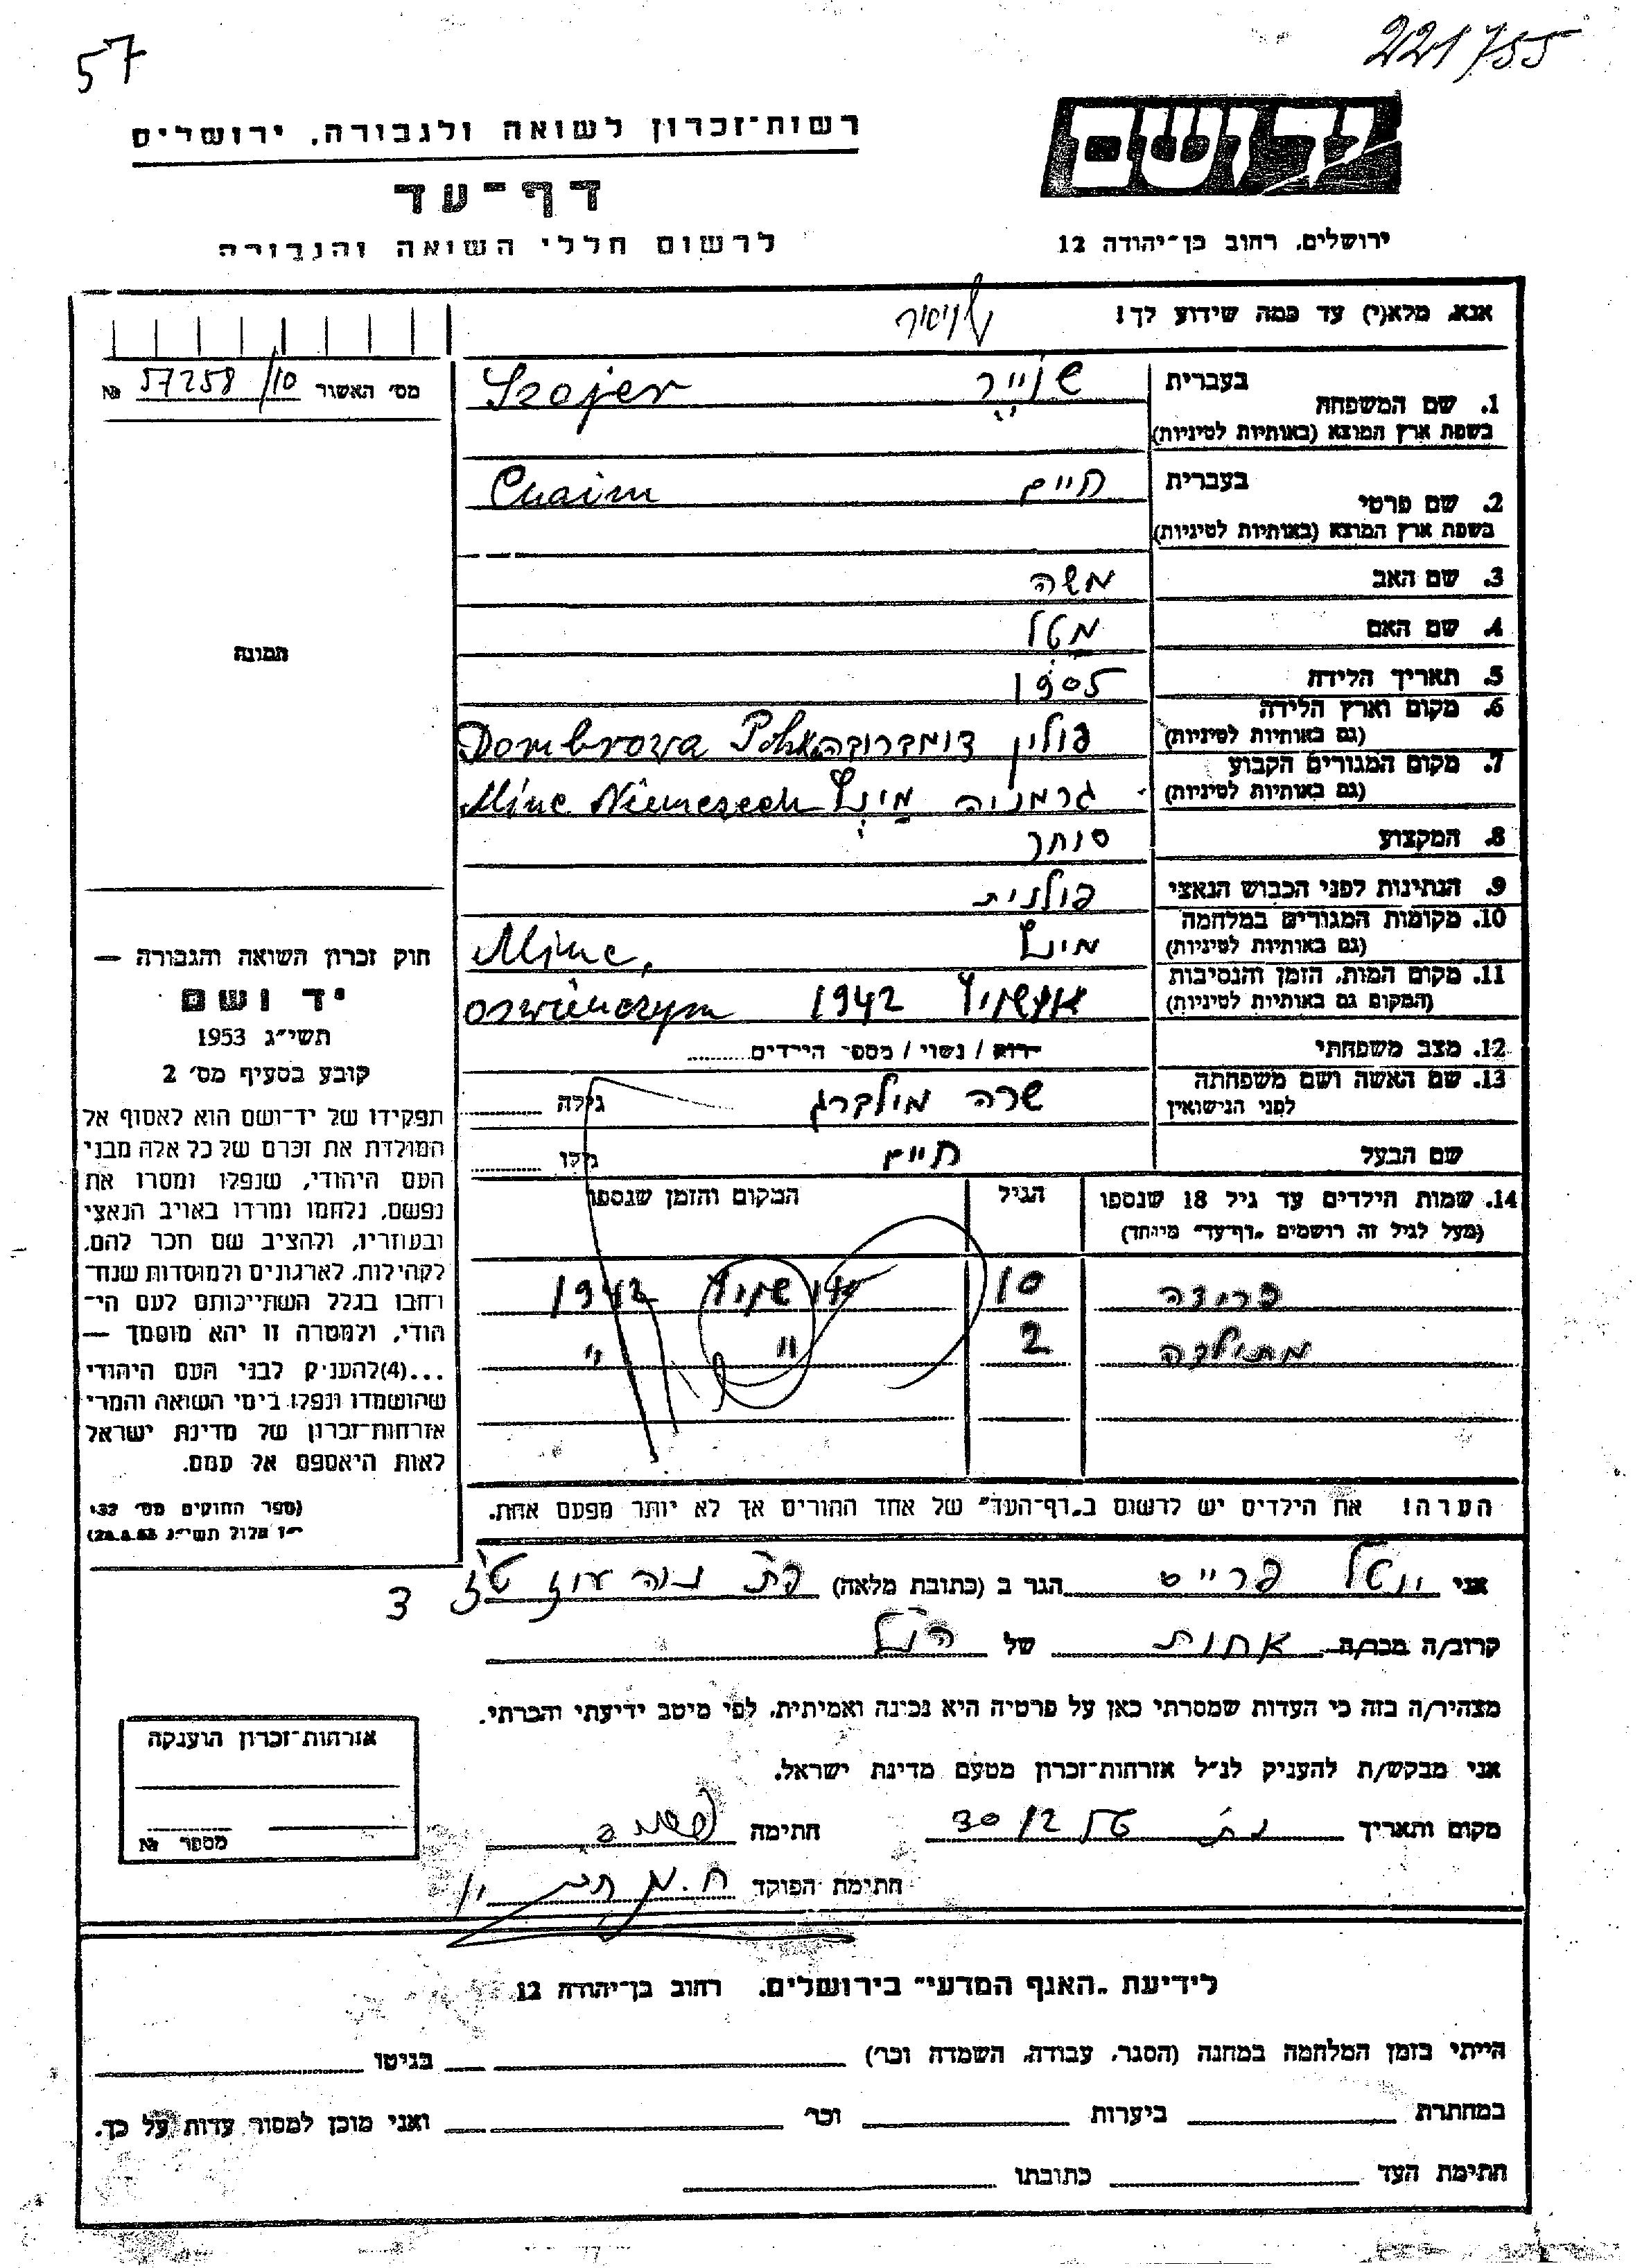 57
221755
רשות־זכרון לשואה ולגבורה, ירושלים
יד ושם
דף־עד
לרשום חללי השואה והגבורה
ירושלים, רחוב בן־יהודה 12
אנא, מלא(י) עד כמה שידוע לך!
מס׳ האשור 57258/10 №
1. שם המשפחה בעברית שוייר Szojer
בשפת ארץ המוצא (באותיות לטיניות)
2. שם פרטי בעברית חיים Chaim
בשפת ארץ המוצא (באותיות לטיניות)
3. שם האב משה
4. שם האם מטל
5. תאריך הלידה 1905
6. מקום וארץ הלידה (גם באותיות לטיניות) פולין דומברובה Dombrova
7. מקום המגורים הקבוע (גם באותיות לטיניות) גרמניה מינץ Minc Niemczech
8. המקצוע סוחר
9. הנתינות לפני הכבוש הנאצי פולנית
10. מקומות המגורים במלחמה (גם באותיות לטיניות) מינץ Minc,
11. מקום המות, הזמן והנסיבות (המקום גם באותיות לטיניות) אושויץ 1942 Oswienczym
12. מצב משפחתי רווק / נשוי / מספר הילדים
13. שם האשה ושם משפחתה לפני הנישואין שרה מילברג גילה
שם הבעל חיים גילו
14. שמות הילדים עד גיל 18 שנספו הגיל המקום והזמן שנספו
(מעל לגיל זה רושמים „דף־עד״ מיוחד)
פרידה 10 אושויץ 1942
מתילדה 2 " "
הערה! את הילדים יש לרשום ב„דף־העד״ של אחד ההורים אך לא יותר מפעם אחת.
תמונה
חוק זכרון השואה והגבורה —
יד ושם
תשי״ג 1953
קובע בסעיף מס׳ 2
תפקידו של יד־ושם הוא לאסוף אל
המולדת את זכרם של כל אלה מבני
העם היהודי, שנפלו ומסרו את
נפשם, נלחמו ומרדו באויב הנאצי
ובעוזריו, ולהציב שם וזכר להם,
לקהילות, לארגונים ולמוסדות שנח־
רחבו בגלל השתייכותם לעם הי־
הודי, ולמטרה זו יהא מוסמך —
...(4) להעניק לבני העם היהודי
שהושמדו ונפלו בימי השואה והמרי
אזרחות־זכרון של מדינת ישראל
לאות היאספם אל עמם.
(ספר החוקים מס׳ 132
י״ז אלול תשי״ג 28.8.53)
אני יוטל פרייס הגר ב (כתובת מלאה)
קרוב/ה מכר/ה אחות של הנ״ל
מצהיר/ה בזה כי העדות שמסרתי כאן על פרטיה היא נכונה ואמיתית, לפי מיטב ידיעתי והכרתי.
אני מבקש/ת להעניק לנ״ל אזרחות־זכרון מטעם מדינת ישראל.
מקום ותאריך 30/12 חתימה
חתימת הפוקד
אזרחות־זכרון הוענקה
מספר №
לידיעת „האגף המדעי״ בירושלים, רחוב בן־יהודה 12
הייתי בזמן המלחמה במחנה (הסגר, עבודה, השמדה וכו׳) בגיטו
במחתרת ביערות וכו׳ ואני מוכן למסור עדות על כך.
חתימת העד כתובתו